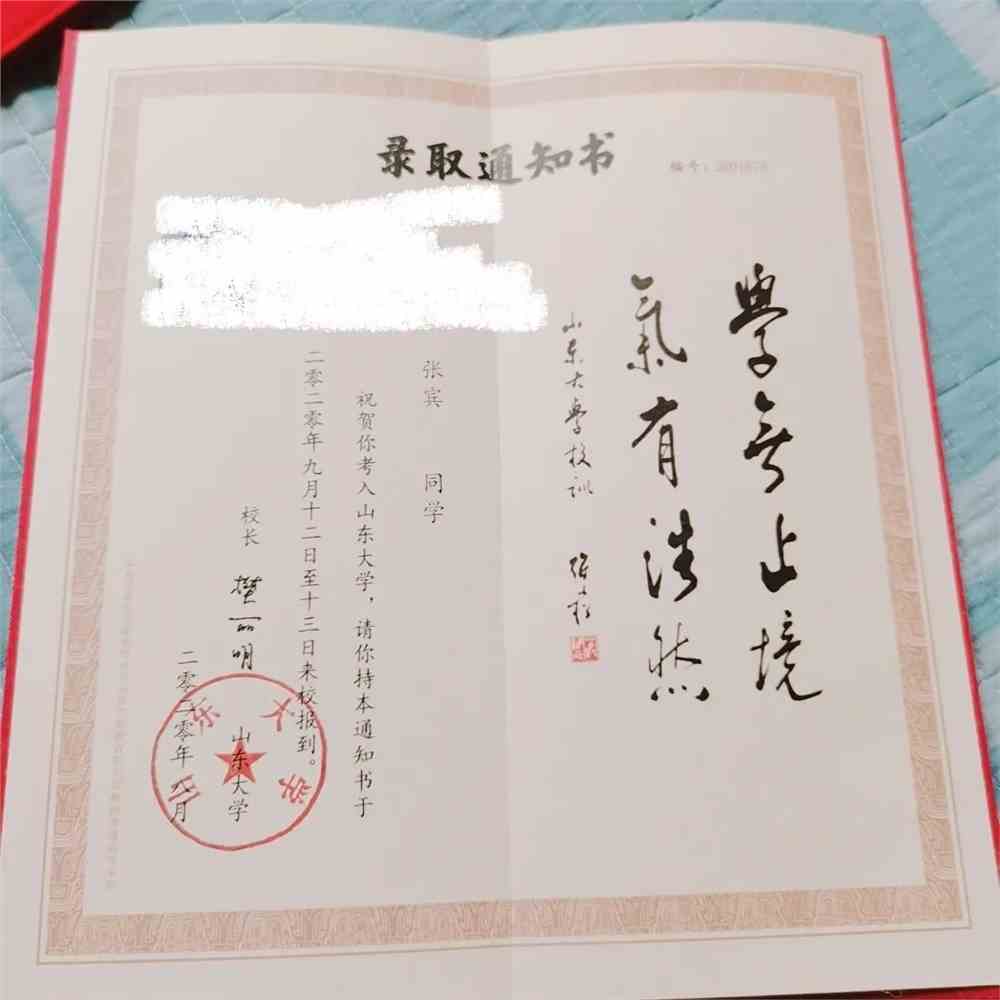 录取通知书
编号：
學無止境
氣有浩然
山东大學校训
张宾 同学
祝贺你考入山东大学，请你持本通知书于
二零二零年九月十二日至十三日来校报到。
校长 樊丽明
山东大学
二零二零年八月
山东大学